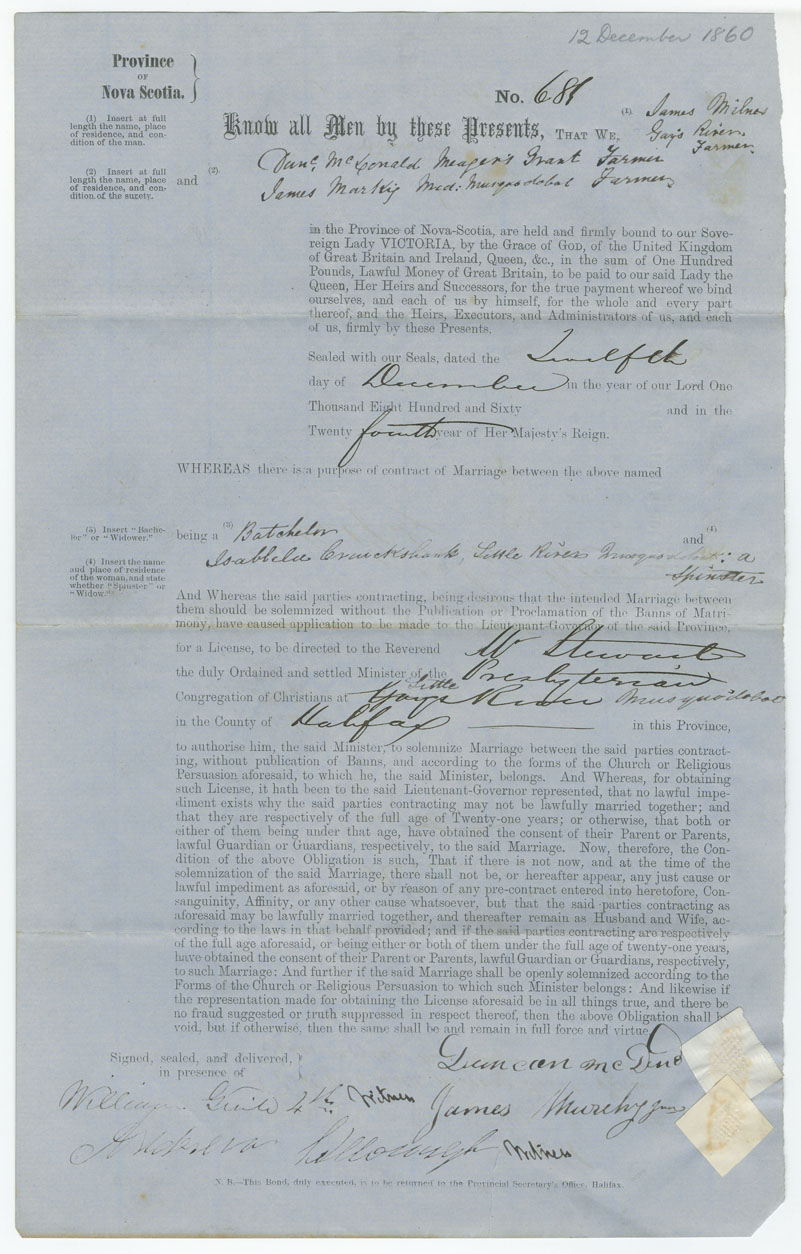 12 December 1860
Province
OF
Nova Scotia.
No. 681
(1) Insert at full
length the name, place
of residence, and con-
dition of the man.
Know all Men by these Presents, THAT WE,
(1). James Milner
Gay's River
Farmer
(2) Insert at full
length the name, place
of residence, and con-
dition of the surety.
and
(2).
Dunc. McDonald Meager's Grant Farmer
James Mid: Musquodobat Farmer
in the Province of Nova-Scotia, are held and firmly bound to our Sove-
reign Lady VICTORIA, by the Grace of GOD, of the United Kingdom
of Great Britain and Ireland, Queen, &c., in the sum of One Hundred
Pounds, Lawful Money of Great Britain, to be paid to our said Lady the
Queen, Her Heirs and Successors, for the true payment whereof we bind
ourselves, and each of us by himself, for the whole and every part
thereof, and the Heirs, Executors, and Administrators of us, and each
of us, firmly by these Presents.
Sealed with our Seals, dated the Twelfth
day of December in the year of our Lord One
Thousand Eight Hundred and Sixty and in the
Twenty fourth year of Her Majesty's Reign.
WHEREAS there is a purpose of contract of Marriage between the above named
(3) Insert "Bache-
lor" or "Widower."
being a (3) Batchelor and (4)
(4) Insert the name
and place of residence
of the woman, and state
whether "Spinster" or
"Widow."
Isabbela Cruickshank, Little River Musquodobit: a
Spinster
And Whereas the said parties contracting, being desirous that the intended Marriage between
them should be solemnized without the Publication or Proclamation of the Banns of Matri-
mony, have caused application to be made to the Lieutenant-Governor of the said Province,
for a License, to be directed to the Reverend Mr Stewart
the duly Ordained and settled Minister of the Presbyterian
Congregation of Christians at Gays Little River Musquodobat
in the County of Halifax in this Province,
to authorise him, the said Minister, to solemnize Marriage between the said parties contract-
ing, without publication of Banns, and according to the forms of the Church or Religious
Persuasion aforesaid, to which he, the said Minister, belongs. And Whereas, for obtaining
such License, it hath been to the said Lieutenant-Governor represented, that no lawful impe-
diment exists why the said parties contracting may not be lawfully married together; and
that they are respectively of the full age of Twenty-one years; or otherwise, that both or
either of them being under that age, have obtained the consent of their Parent or Parents,
lawful Guardian or Guardians, respectively, to the said Marriage. Now, therefore, the Con-
dition of the above Obligation is such, That if there is not now, and at the time of the
solemnization of the said Marriage, there shall not be, or hereafter appear, any just cause or
lawful impediment as aforesaid, or by reason of any pre-contract entered into heretofore, Con-
sanguinity, Affinity, or any other cause whatsoever, but that the said parties contracting as
aforesaid may be lawfully married together, and thereafter remain as Husband and Wife, ac-
cording to the laws in that behalf provided; and if the said parties contracting are respectively
of the full age aforesaid, or being either or both of them under the full age of twenty-one years,
have obtained the consent of their Parent or Parents, lawful Guardian or Guardians, respectively,
to such Marriage: And further if the said Marriage shall be openly solemnized according to the
Forms of the Church or Religious Persuasion to which such Minister belongs: And likewise if
the representation made for obtaining the License aforesaid be in all things true, and there be
no fraud suggested or truth suppressed in respect thereof, then the above Obligation shall be
void, but if otherwise, then the same shall be and remain in full force and virtue.
Signed, sealed, and delivered,
in presence of
Duncan McDnd
William Guild 4th Witness
James
Witness
N. B.—This Bond, duly executed, is to be returned to the Provincial Secretary's Office, Halifax.